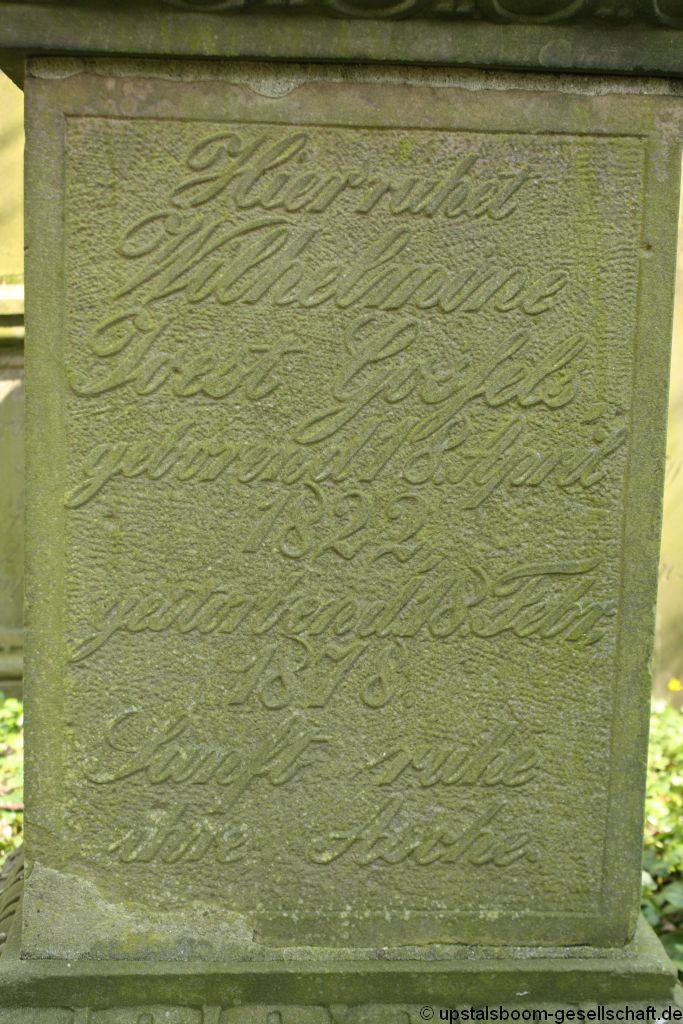 Hier ruhet
Wilhelmine
Joest Goefels,
geboren d. 18. April
1822,
gestorben d. 18. Febr.
1878.
Sanft ruhe
ihre Asche.
© upstalsboom-gesellschaft.de